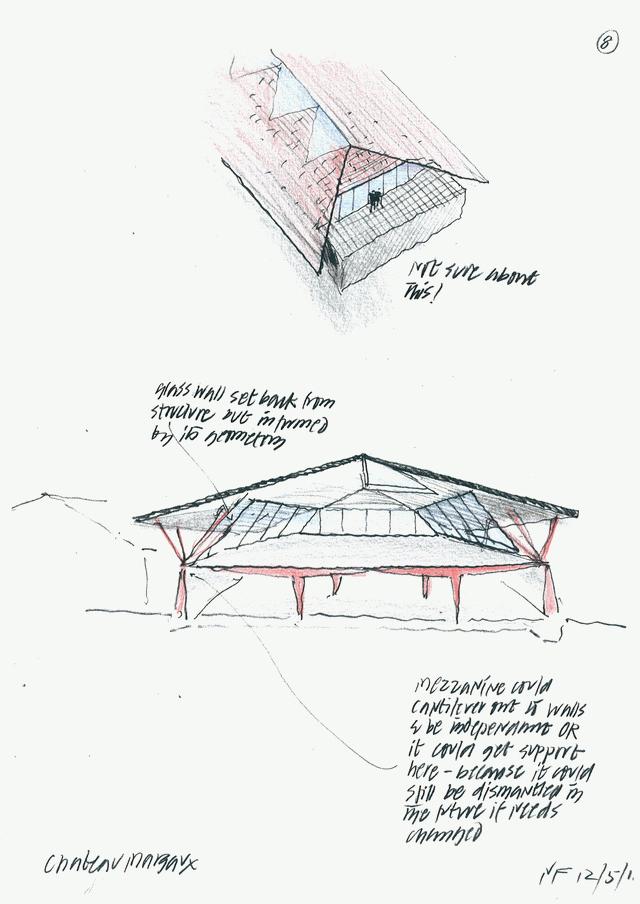 8
Not sure about
This!
glass wall set back from
structure but informed
by its geometry
mezzanine could
cantilever out to walls
& be independant OR
it could get support
here - because it could
still be dismantled in
the future if needs
changed
Chateau Margaux
NF 12/5/1